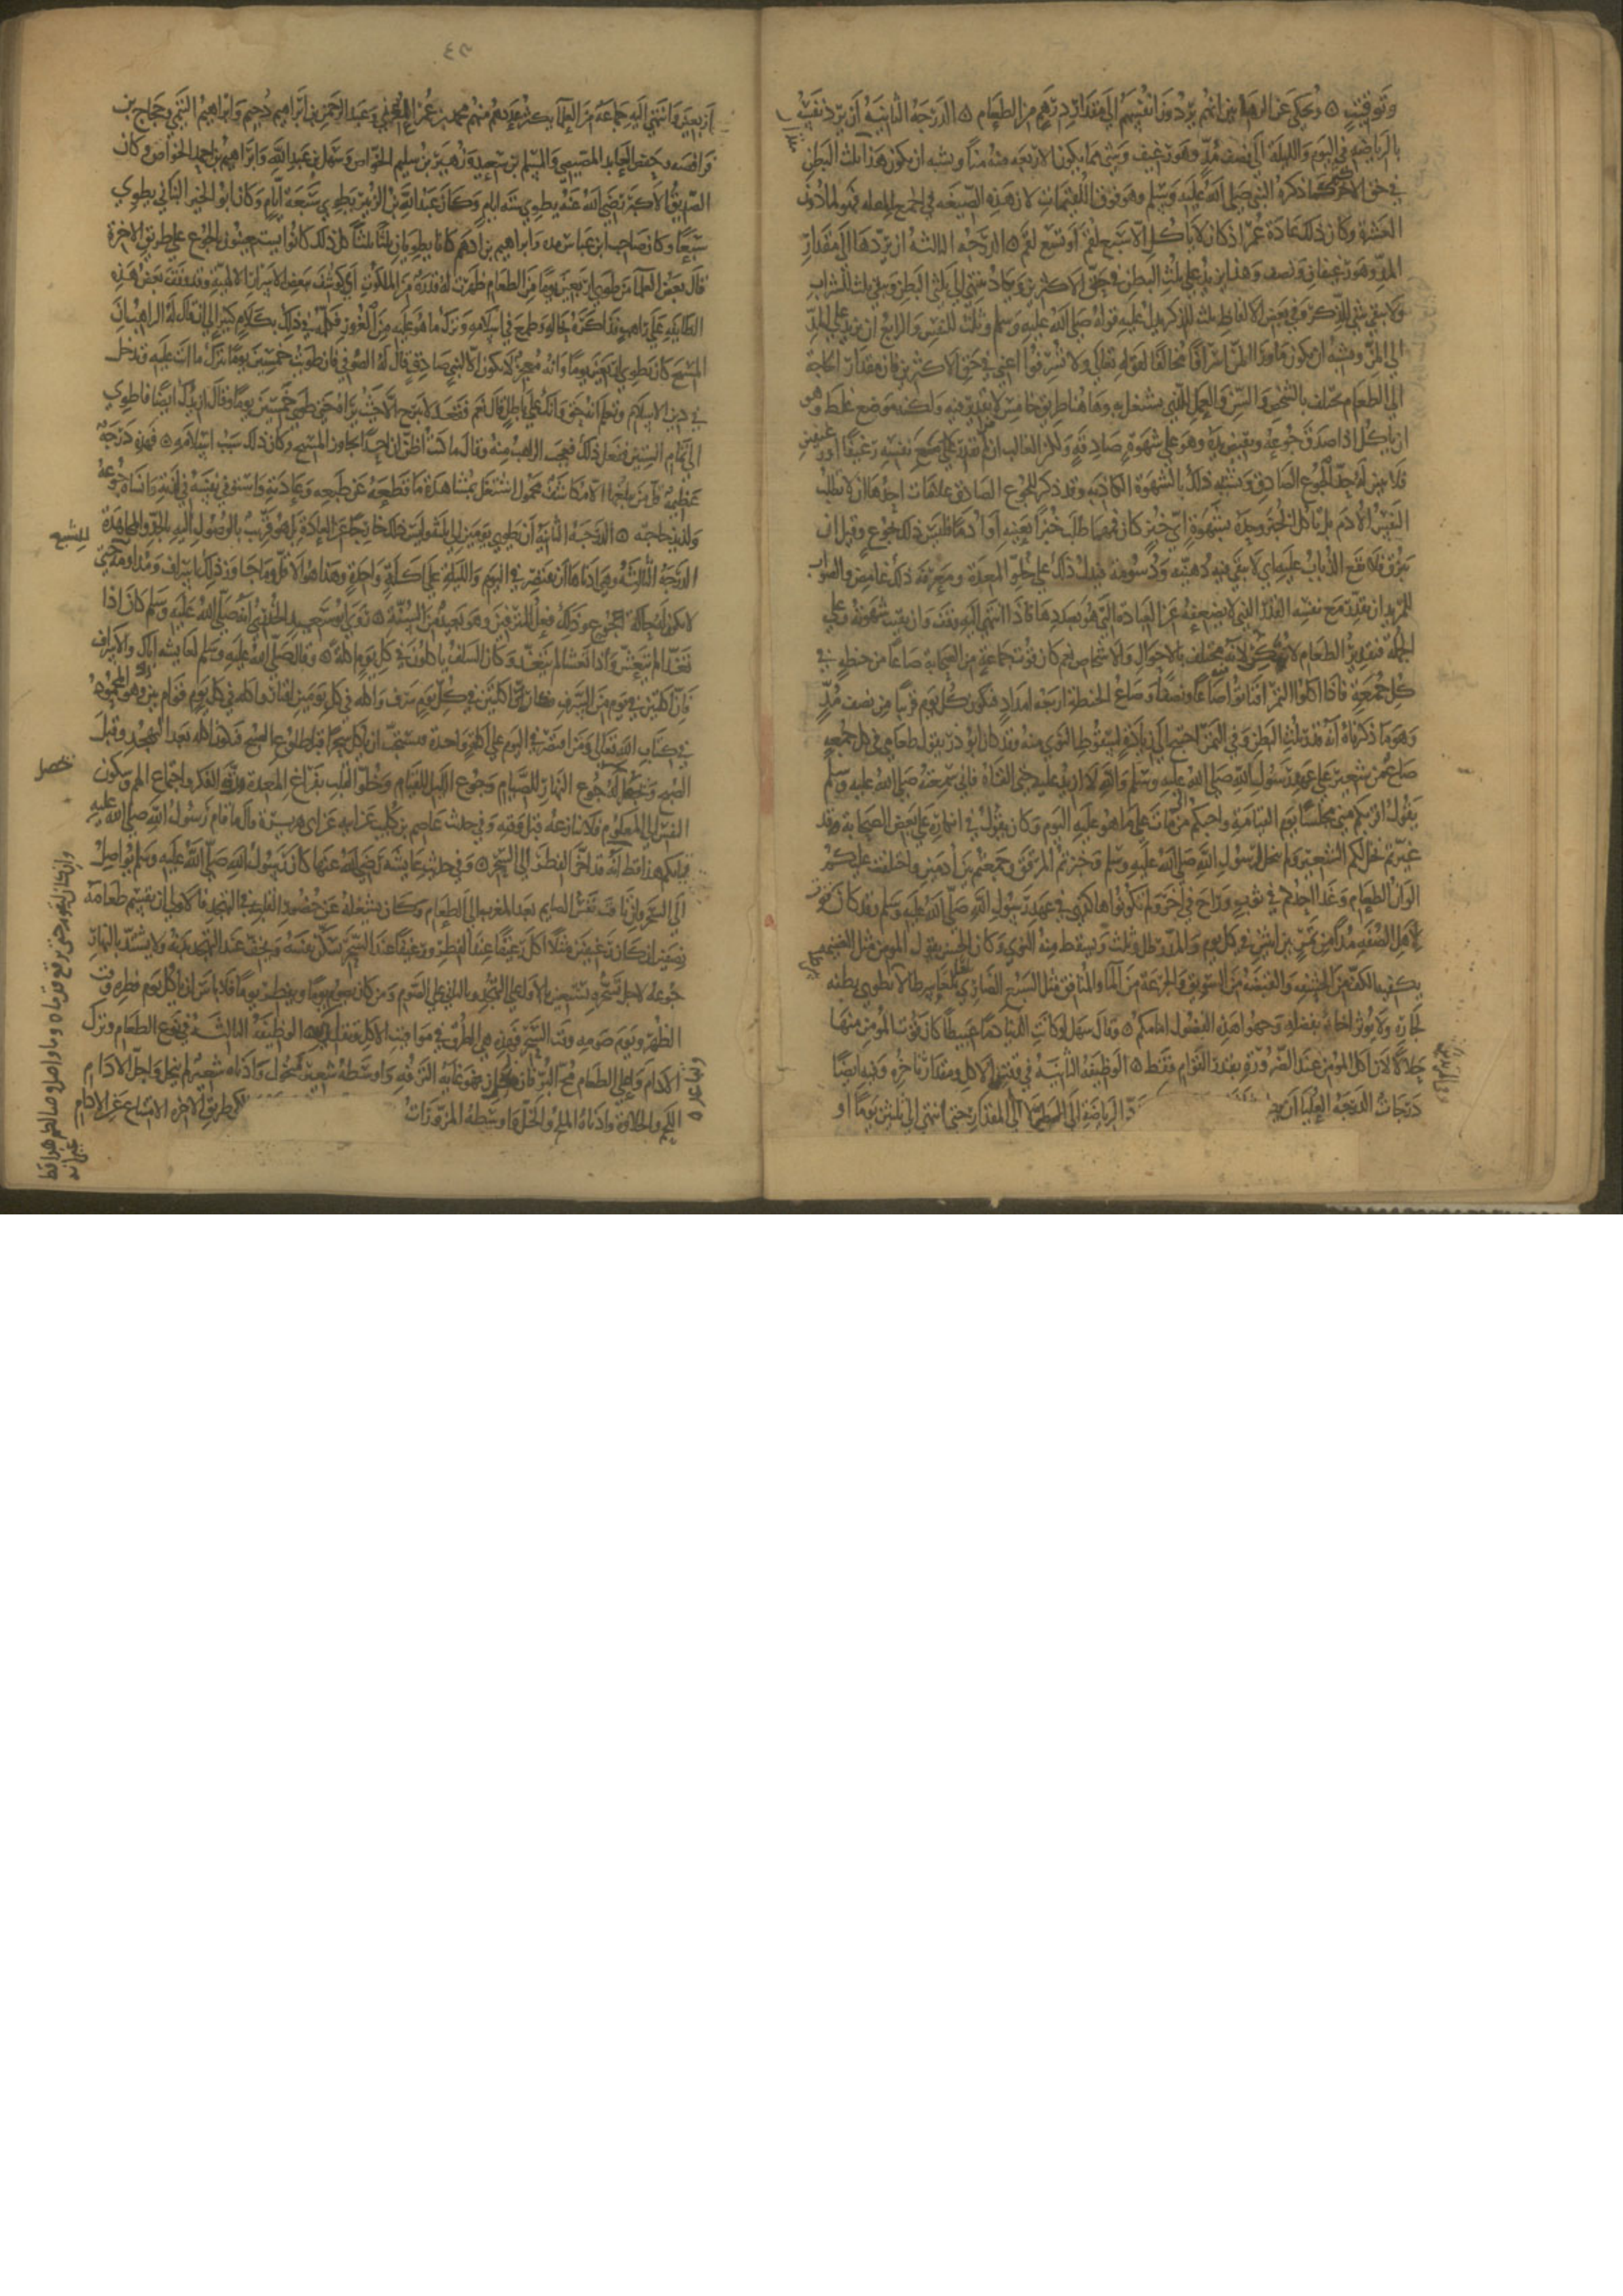 وتوقيته ۞ وحكى عن الرهابين انهم يردون انفسهم الى مقدار درهم من الطعام ۞ الدرجة الثانية ان يرد نفسه
بالرياضة في اليوم والليلة الى نصف مد وهو رغيف وشي مما يكون الاربعة منه منا ويشبه ان يكون هذا ثلث البطن
في حق الاكثر كما ذكره النبي صلى الله عليه وسلم وهو فوق اللقيمات لان هذه الصيغة في الجمع للقلة فهو لما دون
العشرة وكان ذلك عادة عمر اذ كان لا ياكل الا سبع لقم او تسع لقم ۞ الدرجة الثالثة ان يردها الى مقدار
المد وهو رغيفان ونصف وهذا يزيد على ثلث البطن في حق الاكثرين ويكاد ينتهي الى ثلثي البطن ويبقى ثلث للشراب
ولا يبقى شي للذكر وفي بعض الالفاظ ثلث للذكر بدل عليه قوله صلى الله عليه وسلم وثلث للنفس والرابع ان يزيد على المد
الى المن ويشبه ان يكون ما وراء المن اسرافا مخالفا لقوله تعالى ولا تسرفوا اعني في حق الاكثرين فان مقدار الحاجة
الى الطعام يختلف بالشخص والسن والعمل الذي يشتغل به وهاهنا طريق خامس لا تقدير فيه ولكنه موضع غلط وهو
ان ياكل اذا صدق جوعه ويقبض يده وهو على شهوة صادقة ولكن الغالب ان من لم يقدر على نفسه رغيفا او رغيفين
فلا يتبين له حد الجوع الصادق ويشتبه ذلك بالشهوة الكاذبة وقد ذكر للجوع الصادق علامات احدها ان لا تطلب
النفس الادم بل ياكل الخبز وحده بشهوة اي خبز كان فمهما طلب خبزا بعينه او ادما فليس ذلك بجوع وقيل ان
يبزق فلا يقع الذباب عليه اي لا يبقى فيه دهنية ودسومة فيدل ذلك على خلو المعدة ومعرفة ذلك غامض والصواب
للمريد ان يقدر مع نفسه القدر الذي لا يضعفه عن العبادة التي هو بصددها فاذا انتهى اليه وقف وان بقيت شهوته وعلى
الجملة فتقدير الطعام لا يمكن لانه يختلف بالاحوال والاشخاص نعم كان قوت جماعة من الصحابة صاعا من حنطة في
كل جمعة فاذا اكلوا التمر اقتاتوا صاعا ونصفا وصاع الحنطة اربعة امداد فيكون كل يوم قريبا من نصف مد
وهو ما ذكرناه انه قدر ثلث البطن وفي التمر احتيج الى زيادة لسقوط النوى منه وقد كان ابو ذر يقول طعامي في كل جمعة
صاع من شعير على عهد رسول الله صلى الله عليه وسلم والله لا ازيد عليه حتى القاه فاني سمعته صلى الله عليه وسلم
يقول اقربكم مني مجلسا يوم القيامة واحبكم من مات على ما هو عليه اليوم وكان يقول في انكاره على بعض الصحابة وقد
غيرتم نخل لكم الشعير ولم ينخل لرسول الله صلى الله عليه وسلم وخبزتم المرقق وجمعتم بين ادمين واختلفت عليكم
الوان الطعام وغدا احدكم في ثوب وراح في اخر ولم تكونوا هكذى في عهد رسول الله صلى الله عليه وسلم وقد كان قوت
لاهل الصفة مدا من تمر بين اثنين في كل يوم والمد رطل وثلث ويسقط منه النوى وكان الحسن يقول المومن مثل العنيزة
يكفيه الكف من الحشف والقبضة من السويق والجرعة من الماء والمنافق مثل السبع الضاري
لجاره ولا يوثر اخاه بفضله وجهوا هذه الفضول امامكم ۞ وقال سهل لو كانت الدنيا دما عبيطا كان قوت المومن منها
حلالا لان اكل المومن عند الضرورة بقدر القوام فقط ۞ الوظيفة الثانية في وقت الاكل ومقدار تاخره وفيه ايضا
درجات الدرجة العليا الرياضة الى الى المقدار حتى انتهى الى ثلثين يوما او
اربعين وانتهى اليه جماعة من العلما يكثر عددهم منهم محمد بن عمر و عبد الرحمن بن ابراهيم دحيم وابراهيم التيمي وحجاج بن
فرافصه وحفص العابد المصيصي والمسلم بن سعيد وزهير بن سليم الخواص وسهل بن عبدالله وابراهيم بن احمد الخواص وكان
الصديق الاكبر رضي الله عنه يطوي ستة ايام وكان عبدالله بن الزبير يطوي سبعة ايام وكان ابو الخير التناتي يطوي
سبعا وكان صاحب ابن عباس وابراهيم بن ادهم كانا يطويان ثلثا ثلثا كل ذلك كانوا يستعينون بالجوع على طريق الاخرة
قال بعض العلما من طوى اربعين يوما من الطعام ظهرت له قدرة من الملكوت اي كوشف ببعض الاسرار الالهية وقد وقف بعض هذه
الطائفة على راهب فذاكره بحاله وطمع في اسلامه وترك ما هو عليه من الغرور فكلمه في ذلك بكلام كثير الى ان قال له الراهب ان
المسيح كان يطوي اربعين يوما وانه معجز لا يكون الا لنبي صادق قال له الصوفي فان طويت خمسين يوما تترك ما انت عليه وتدخل
في دين الاسلام وتعلم انه حق وانك على باطل قال نعم فقعد لا يبرح الا حيث يراه حتى طوى خمسين يوما وقال ازيدك ايضا فطوى
الى تمام الستين ففعل ذلك فعجب الراهب منه وقال ما كنت اظن ان احدا يجاوز المسيح وكان ذلك سبب اسلامه ۞ فهذه درجة
عظيمة قل من يبلغها الا مكاشف محمول اشتغل بمشاهدة ما قطعه عن طبعه وعادته واستوفى نفسه في لذته وانساه جوعه
وحاجته ۞ الدرجة الثانية ان يطوي يومين الى ثلثة وليس ذلك خارجا عن العادة بل هو قريب بالوصول اليه بالجد والمجاهدة
الدرجة الثالثة وهي ادناها ان يقتصر في اليوم والليلة على اكلة واحدة وهذا هو الاقل وما جاوز ذلك اسراف ومداومة حتى
لا يكون له حالة الجوع وذلك فعل المترفين وهو بعيد من السنة ۞ روى ابو سعيد الخدري انه صلى الله عليه وسلم كان اذا
تغدا لم يتعش واذا تعشا لم يتغد وكان السلف ياكلون في كل يوم اكلة ۞ وقال صلى الله عليه وسلم لعايشة اياك والاسراف
فان اكلتين في يوم من السرف فكان اكلتين في كل يوم سرف واكلة في كل يومين اقتار واكلة في كل يوم قوام بين ذلك وهو المحمود
في كتاب الله تعالى ومن اقتصر في اليوم على اكلة واحدة فيستحب ان ياكل سحرا قبل طلوع الصبح فيكون اكله بعد التهجد وقبل
الصبح ويحصل له جوع النهار للصيام وجوع الليل للقيام وخلو القلب بفراغ المعدة ورقة الفكر واجتماع الهم وسكون
النفس الى المعلوم فلا تنازعه قبل وقته وفي حديث عاصم بن كليب عن ابيه عن ابي هريرة قال ما قام رسول الله صلى الله عليه
قيامكم هذا قط انه قد اخر الفطر الى السحر ۞ وفي حديث عايشة رضي الله عنها كان رسول الله صلى الله عليه وسلم يواصل
الى السحر وان كان تتقاضى نفس الصايم بعد المغرب الى الطعام وكان يشغله عن حضور القلب في التهجد فالاولى ان يقسم طعامه
نصفين ان كان رغيفين مثلا اكل رغيفا عند الفطر ورغيفا عند السحر لتسكن نفسه ويخف عند التهجد بدنه ولا يشتد بالنهار
جوعه لاجل تسحره فيستعين بالاول على التهجد وبالثاني على الصوم ومن كان يصوم يوما ويفطر يوما فلا باس ان ياكل يوم فطره وقت
الظهر ويوم صومه وقت السحر فهذه هي الطرق في مواقيت الاكل ۞ الوظيفة الثالثة في نوع الطعام وترك
الادام واعلى الطعام مخ البر فان نخل فهو غاية الترفه واوسطه شعير منخول وادناه شعير لم ينخل واجل الادام
اللحم والحلاوة وادناه الملح والخل واوسطه المزورات طريق الاخرة الامتناع عن الادام
للشبع
حصل
وان كان ليقوم حتى ترم قدماه وما واصل وصالكم هذا قط
غير انه